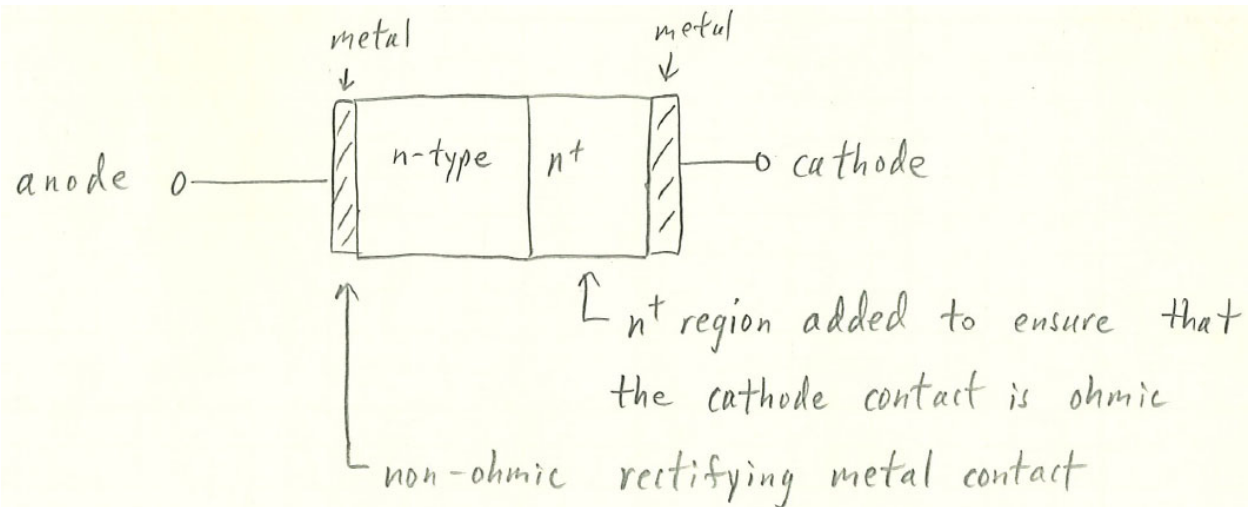 metal metal
anode n-type n+ cathode
n+ region added to ensure that
the cathode contact is ohmic
non-ohmic rectifying metal contact